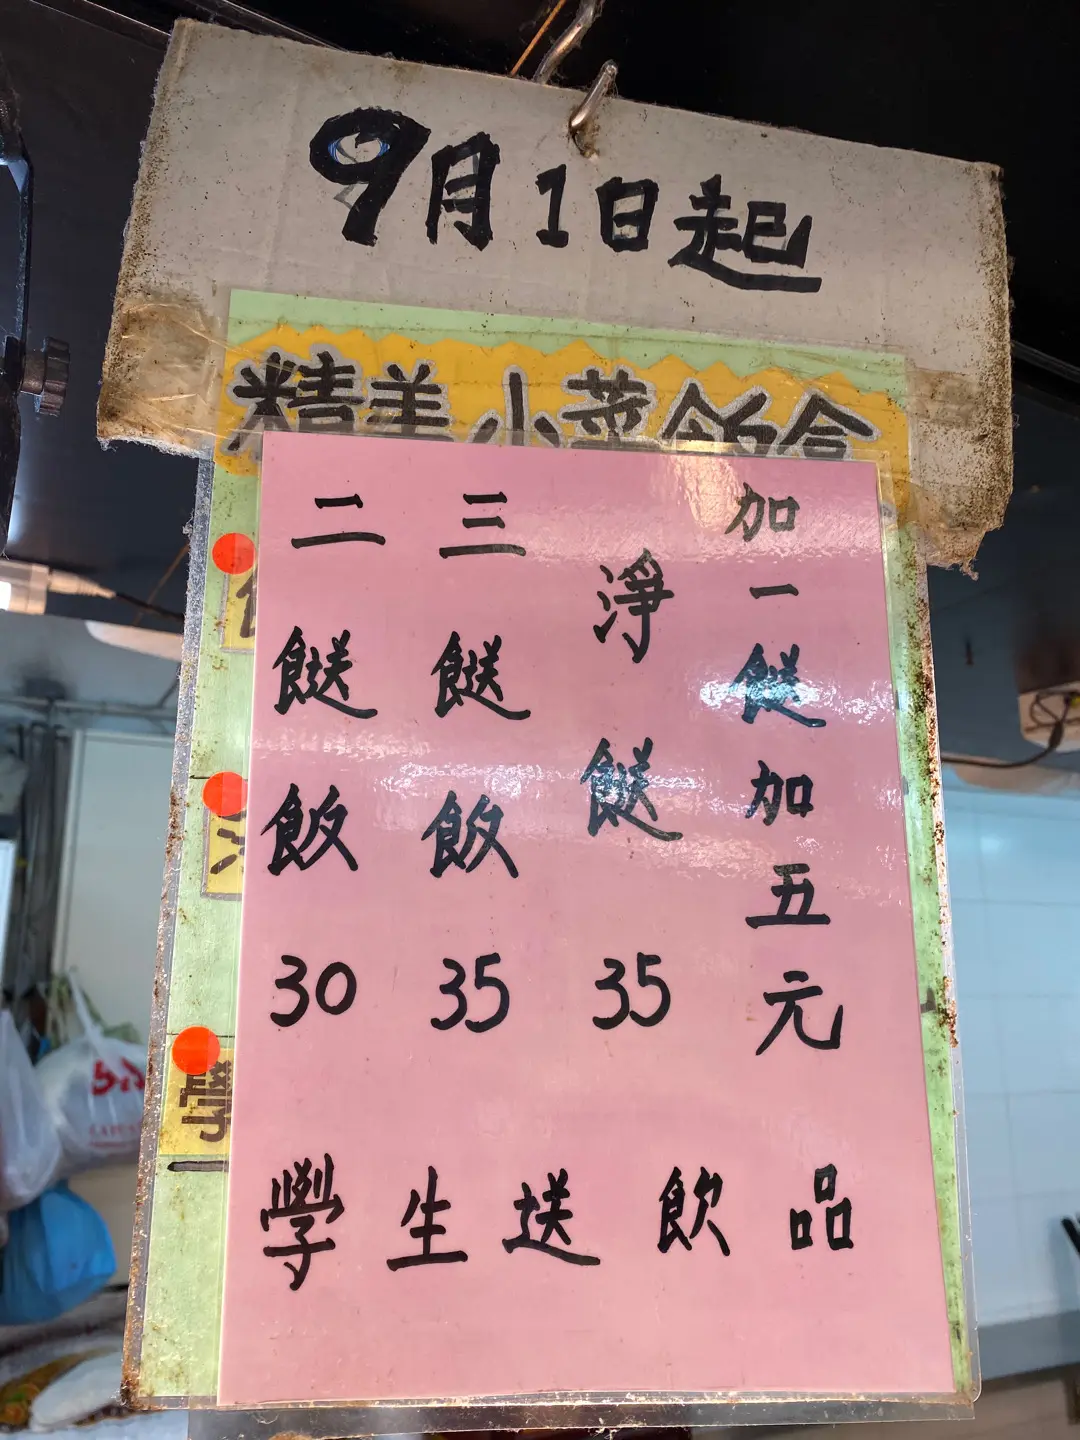 9月1日起
精美小菜飯盒
二餸飯30
三餸飯35
淨餸35
加一餸加五元
學生送飲品
學